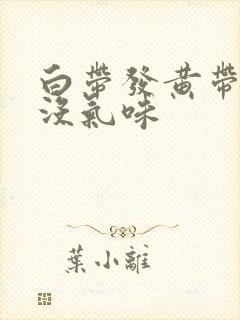 白帶發黃帶
沒氣味
葉小離